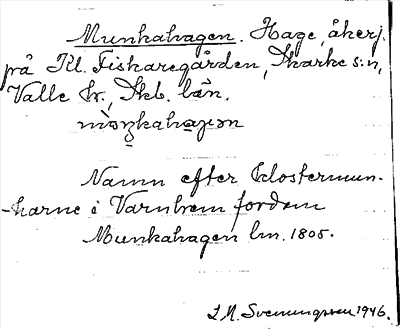 Munkahagen. Hage, åkerj.
på Kl. Fiskaregården, Skarke s:n,
Valle hr., Skb. län.
Namn efter klostermun-
-karne i Varnhem fordom
Munkahagen lm. 1805.
I.M. Svenungsson 1946.